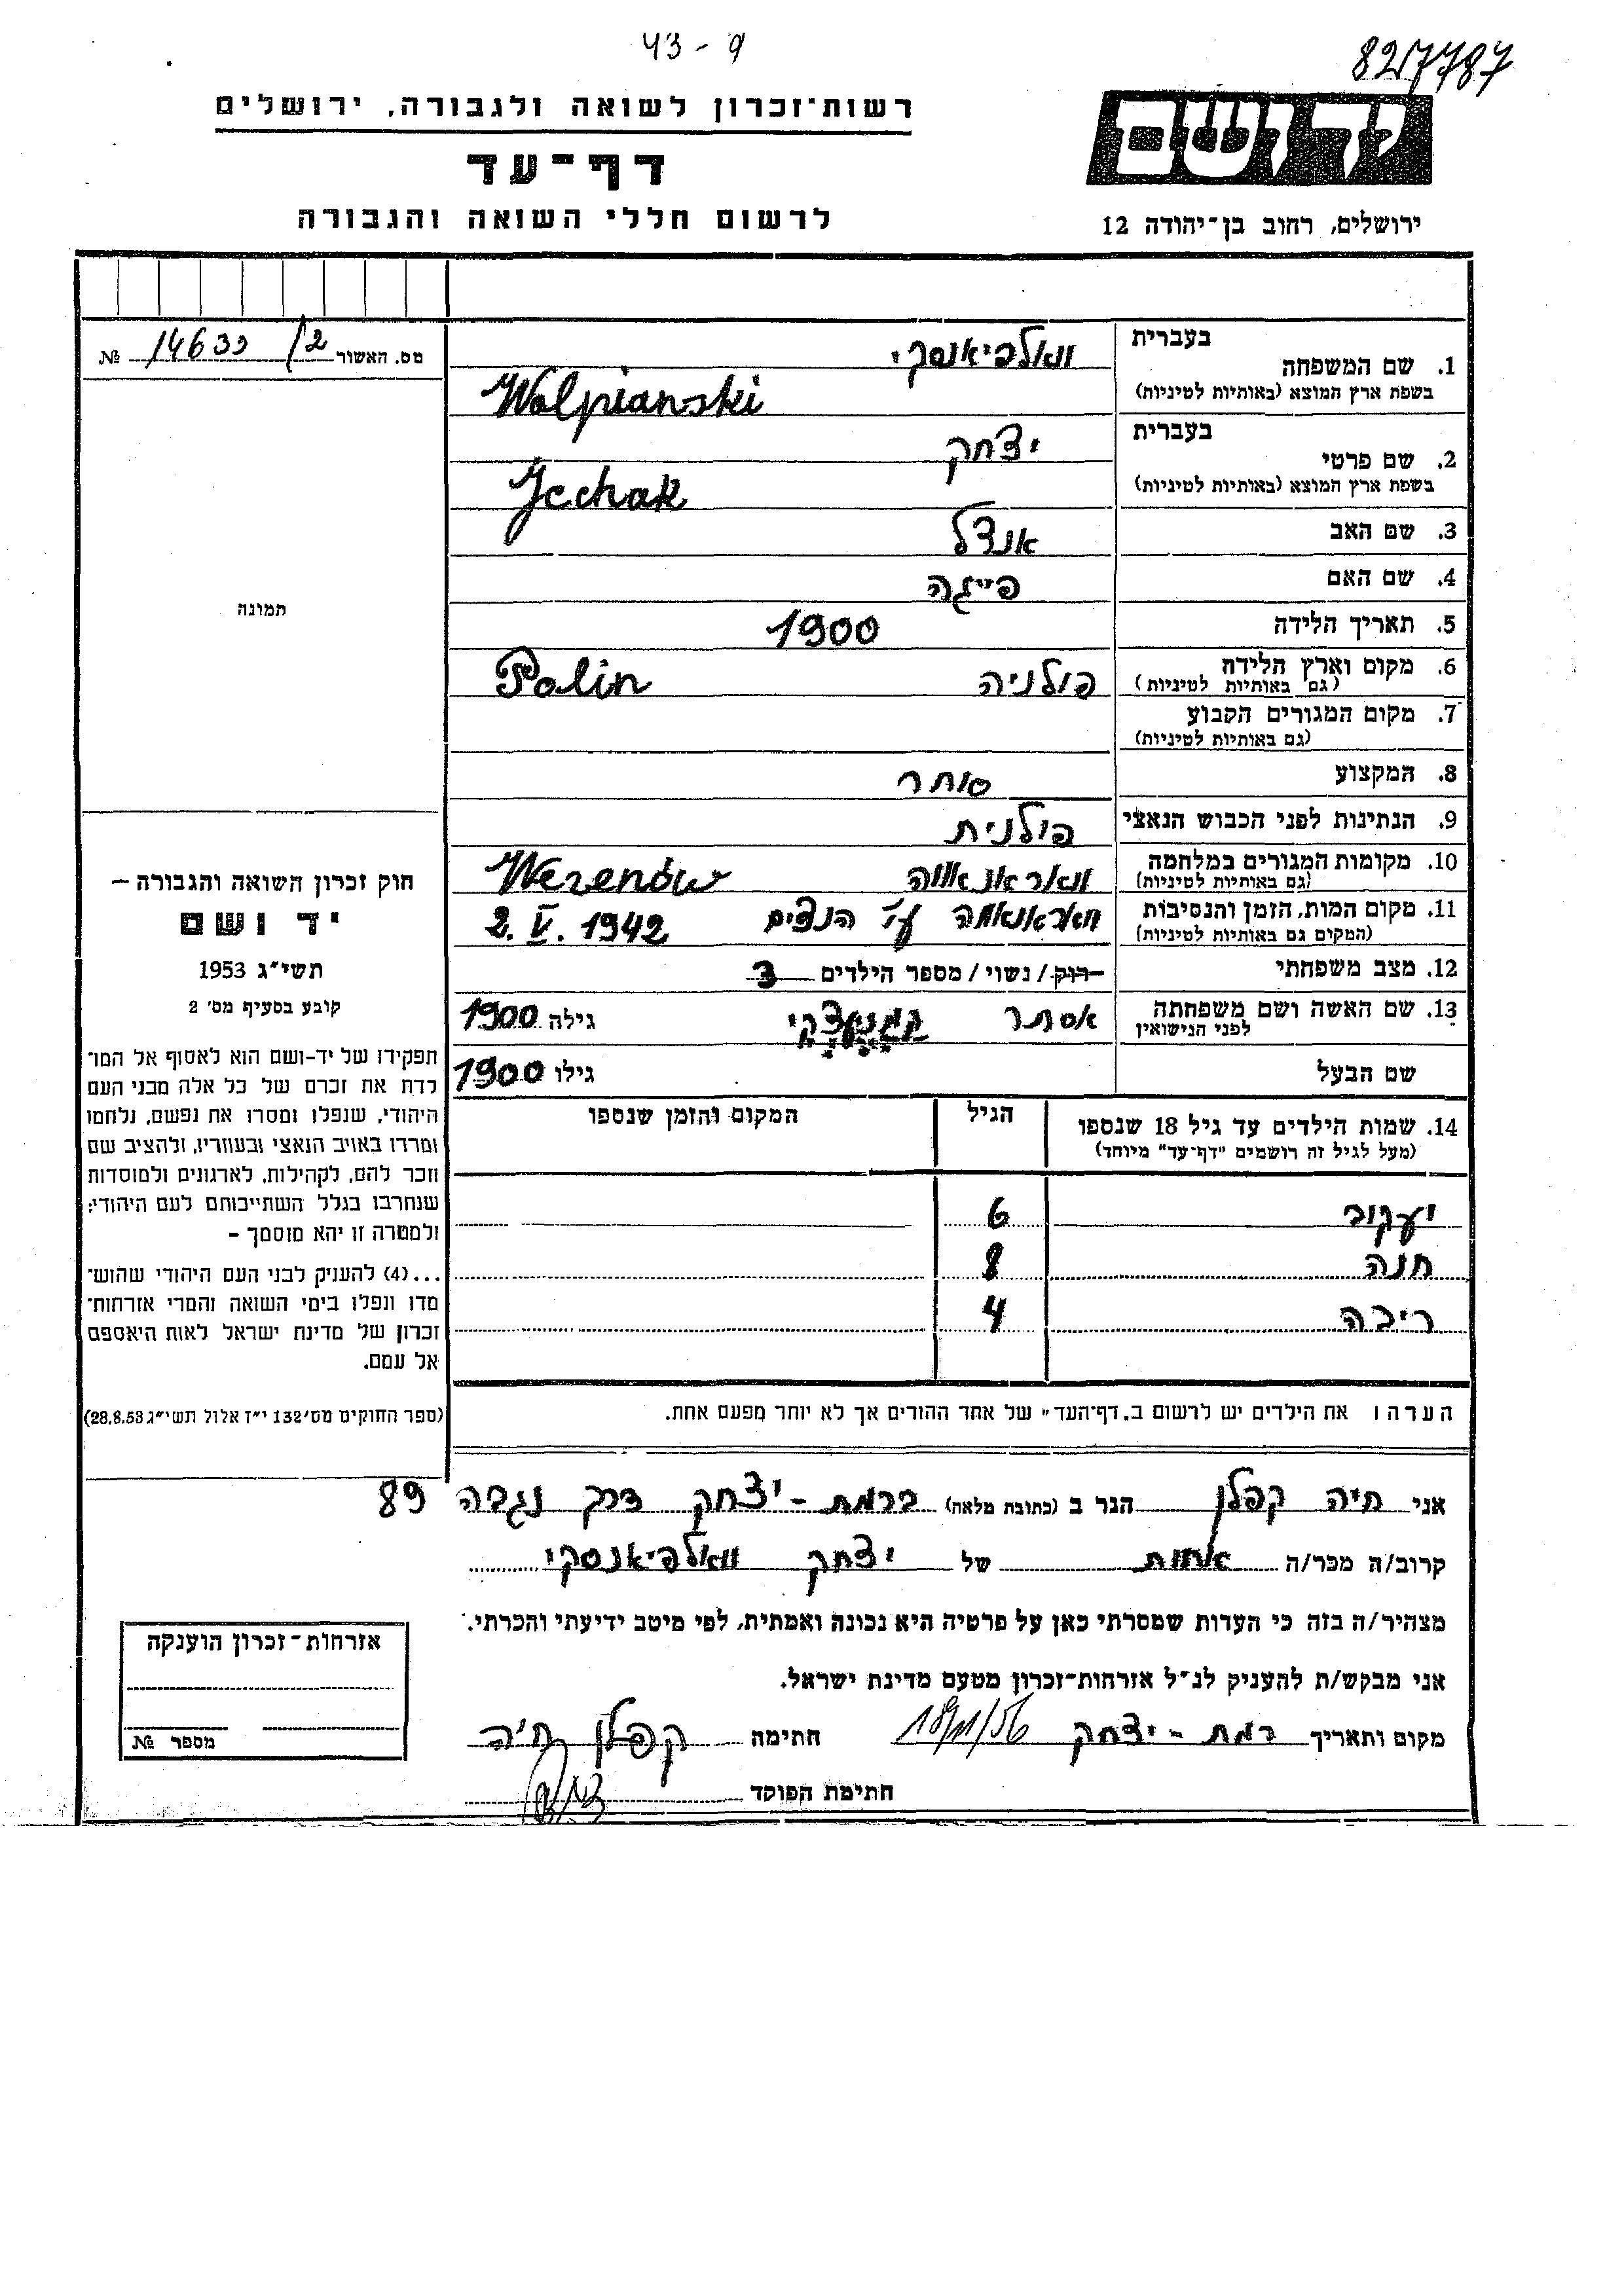 43-9
827787
רשות־זכרון לשואה ולגבורה, ירושלים
דף־עד
לרשום חללי השואה והגבורה
יד ושם
ירושלים, רחוב בן־יהודה 12
מס. האשור 14633/2 №
תמונה
בעברית
1. שם המשפחה וואלפיאנסקי
בשפת ארץ המוצא (באותיות לטיניות) Wolpianski
בעברית
2. שם פרטי יצחק
בשפת ארץ המוצא (באותיות לטיניות) Jcchak
3. שם האב אנדל
4. שם האם פייגה
5. תאריך הלידה 1900
6. מקום וארץ הלידה פולניה Polin
(גם באותיות לטיניות)
7. מקום המגורים הקבוע
(גם באותיות לטיניות)
8. המקצוע סוחר
9. הנתינות לפני הכבוש הנאצי פולנית
10. מקומות המגורים במלחמה Werenów
(גם באותיות לטיניות)
11. מקום המות, הזמן והנסיבות ע"י הנצים 2. V. 1942
(המקום גם באותיות לטיניות)
12. מצב משפחתי רוק / נשוי / מספר הילדים 3
13. שם האשה ושם משפחתה אסתר גילה 1900
לפני הנישואין
שם הבעל גילו 1900
14. שמות הילדים עד גיל 18 שנספו הגיל המקום והזמן שנספו
(מעל לגיל זה רושמים "דף־עד" מיוחד)
יעקוב 6
חנה 8
ריבה 4
הערה ו את הילדים יש לרשום ב,דף־העד" של אחד ההורים אך לא יותר מפעם אחת.
חוק זכרון השואה והגבורה –
יד ושם
תשי"ג 1953
קובע בסעיף מס' 2
תפקידו של יד-ושם הוא לאסוף אל המו־
לדת את זכרם של כל אלה מבני העם
היהודי, שנפלו ומסרו את נפשם, נלחמו
ומרדו באויב הנאצי ובעוזריו, ולהציב שם
וזכר להם, לקהילות, לארגונים ולמוסדות
שנחרבו בגלל השתייכותם לעם היהודי;
ולמטרה זו יהא מוסמך –
...(4) להעניק לבני העם היהודי שהוש־
מדו ונפלו בימי השואה והמרי אזרחות־
זכרון של מדינת ישראל לאות היאספם
אל עמם.
(ספר החוקים מס' 132 י"ז אלול תשי"ג 28.8.53)
אני חיה קפלן הגר ב (כתובת מלאה) ברמת-יצחק דרך נגבה 89
קרוב/ה מכר/ה אחות של יצחק וואלפיאנסקי
מצהיר/ה בזה כי העדות שמסרתי כאן על פרטיה היא נכונה ואמתית, לפי מיטב ידיעתי והכרתי.
אני מבקש/ת להעניק לנ"ל אזרחות־זכרון מטעם מדינת ישראל.
מקום ותאריך רמת-יצחק 18/11/56 חתימה קפלן חיה
חתימת הפוקד
אזרחות־זכרון הוענקה
מספר №